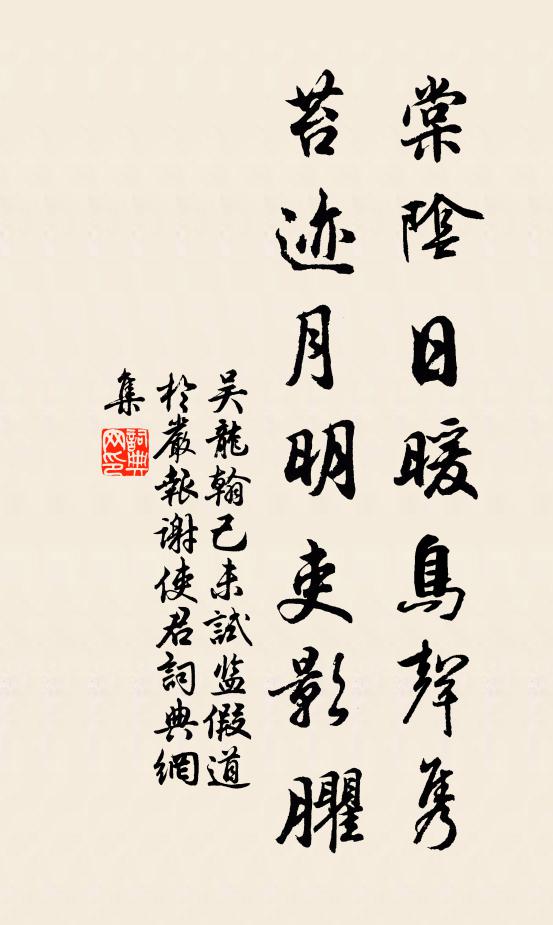 棠陰日暖鳥聲雋
苔迹月明吏影臞
吴龍翰己未試监假道
於嚴報谢使君詞典網
集
詞典网印